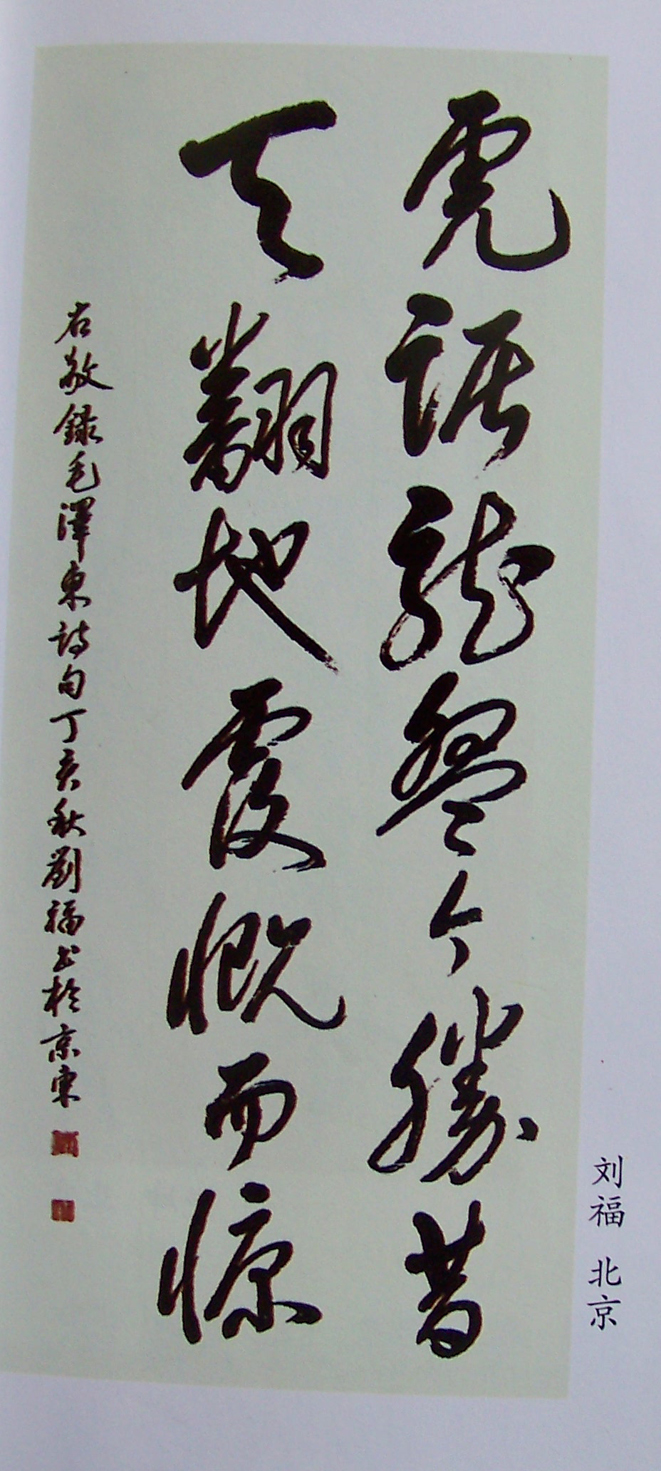 虎踞龍盤今勝昔
天翻地覆慨而慷
右敬録毛澤東詩句丁亥秋劉福书於京東
刘福 北京